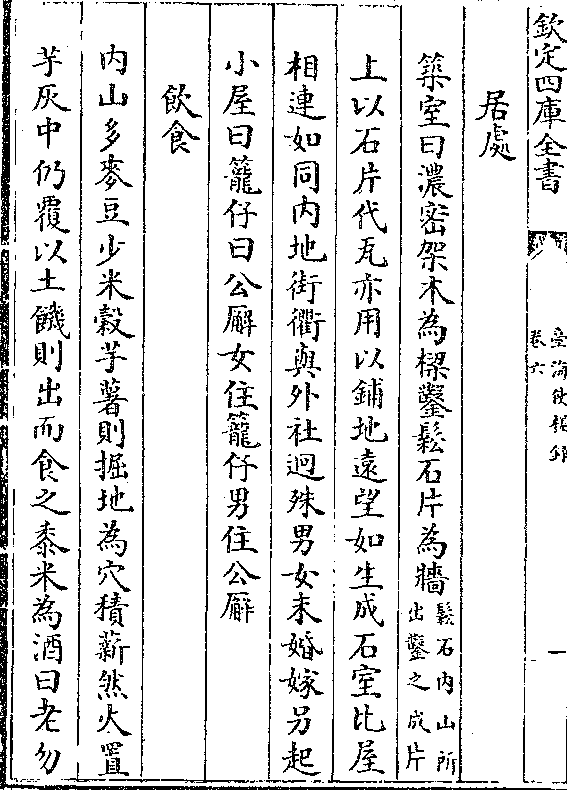 欽定四庫全書
卷六
居處
築室曰濃密架木為樑鑿鬆石片為牆鬆石内山所
出鑿之成片
上以石片代瓦亦用以鋪地遠望如生成石室比屋
相連如同内地街衢與外社迥殊男女未婚嫁另起
小屋曰籠仔曰公廨女住籠仔男住公廨
飲食
内山多麥豆少米穀芋薯則掘地為穴積薪然火置
芋灰中仍覆以土饑則出而食之黍米為酒曰老勿